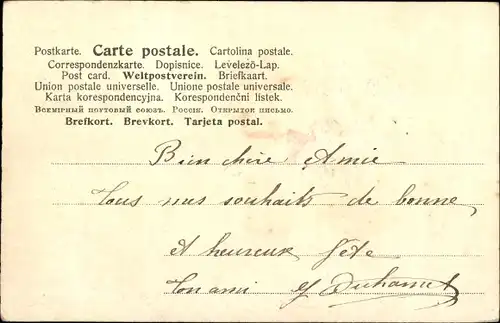 Postkarte. Carte postale. Cartolina postale.
Correspondenzkarte. Dopisnice. Levelező-Lap.
Post card. Weltpostverein. Briefkaart.
Union postale universelle. Unione postale universale.
Karta korespondencyjna. Korespondenční lístek.
Всемірный почтовый союзъ. Россія. Открытое письмо.
Brefkort. Brevkort. Tarjeta postal.
Bien chère Amie
Tous nos souhaits de bonne,
et heureux fête
Ton ami Duhamel